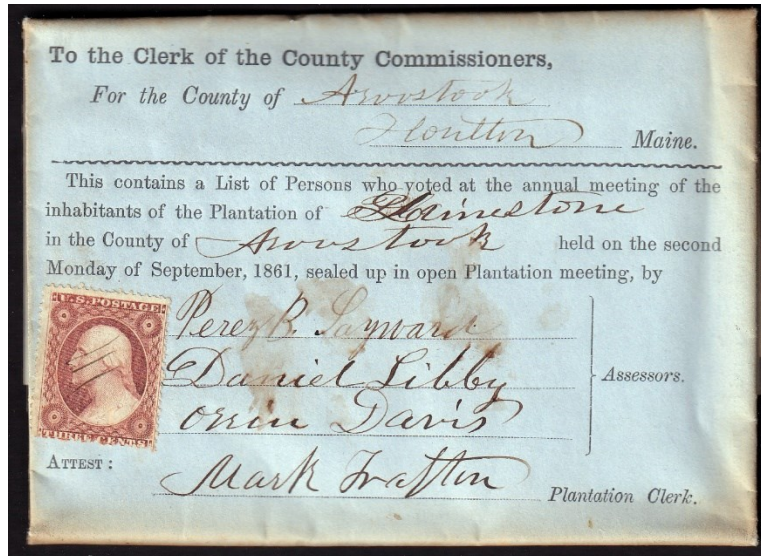 To the Clerk of the County Commissioners,
For the County of Aroostook
Houlton Maine.
This contains a List of Persons who voted at the annual meeting of the
inhabitants of the Plantation of
in the County of Aroostook held on the second
Monday of September, 1861, sealed up in open Plantation meeting, by
U.S. POSTAGE
THREE CENTS
Perez B. Sayward
Daniel Libby
Orrin Davis
Assessors.
ATTEST:
Mark Trafton Plantation Clerk.